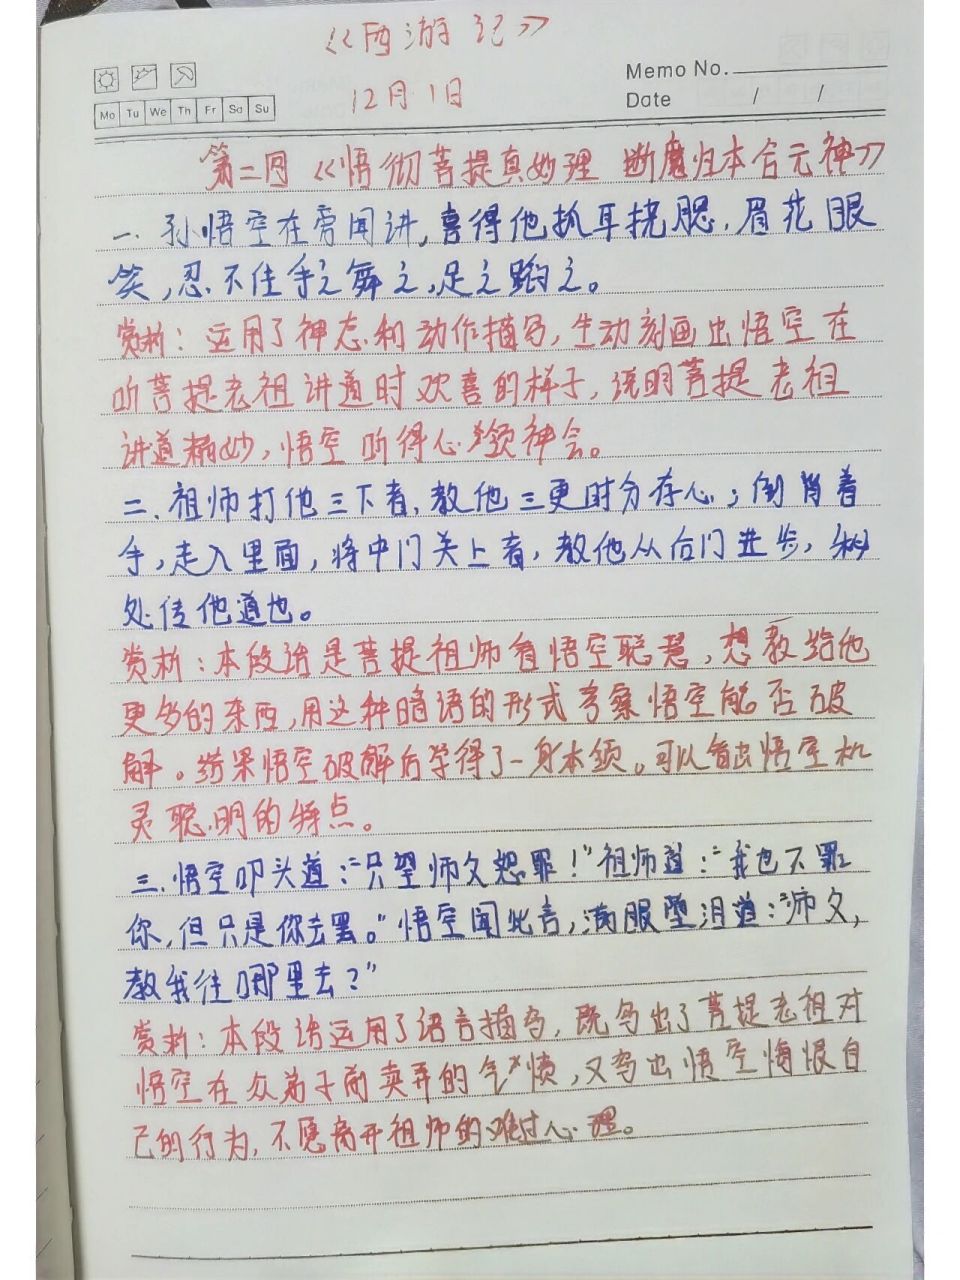 《西游记》
Memo No.
Mo Tu We Th Fr Sa Su
12月1日
Date / /
第二回《悟彻菩提真妙理 断魔归本合元神》
一、孙悟空在旁闻讲,喜得他抓耳挠腮,眉花眼
笑,忍不住手之舞之,足之蹈之。
赏析:运用了神态和动作描写,生动刻画出悟空在
听菩提老祖讲道时欢喜的样子,说明菩提老祖
讲道精妙,悟空听得心领神会。
二、祖师打他三下者,教他三更时分存心;倒背着
手,走入里面,将中门关上者,教他从后门进步,秘
处传他道也。
赏析:本段话是菩提祖师看悟空聪慧,想教给他
更多的东西,用这种暗语的形式考察悟空能否破
解。结果悟空破解后学得了一身本领。可以看出悟空机
灵聪明的特点。
三、悟空叩头道:“只望师父恕罪!”祖师道:“我也不罪
你,但只是你去罢。”悟空闻此言,满眼堕泪道:“师父,
教我往哪里去?”
赏析:本段话运用了语言描写,既写出了菩提老祖对
悟空在众弟子前卖弄的气愤,又写出悟空悔恨自
己的行为,不愿离开祖师的难过心理。